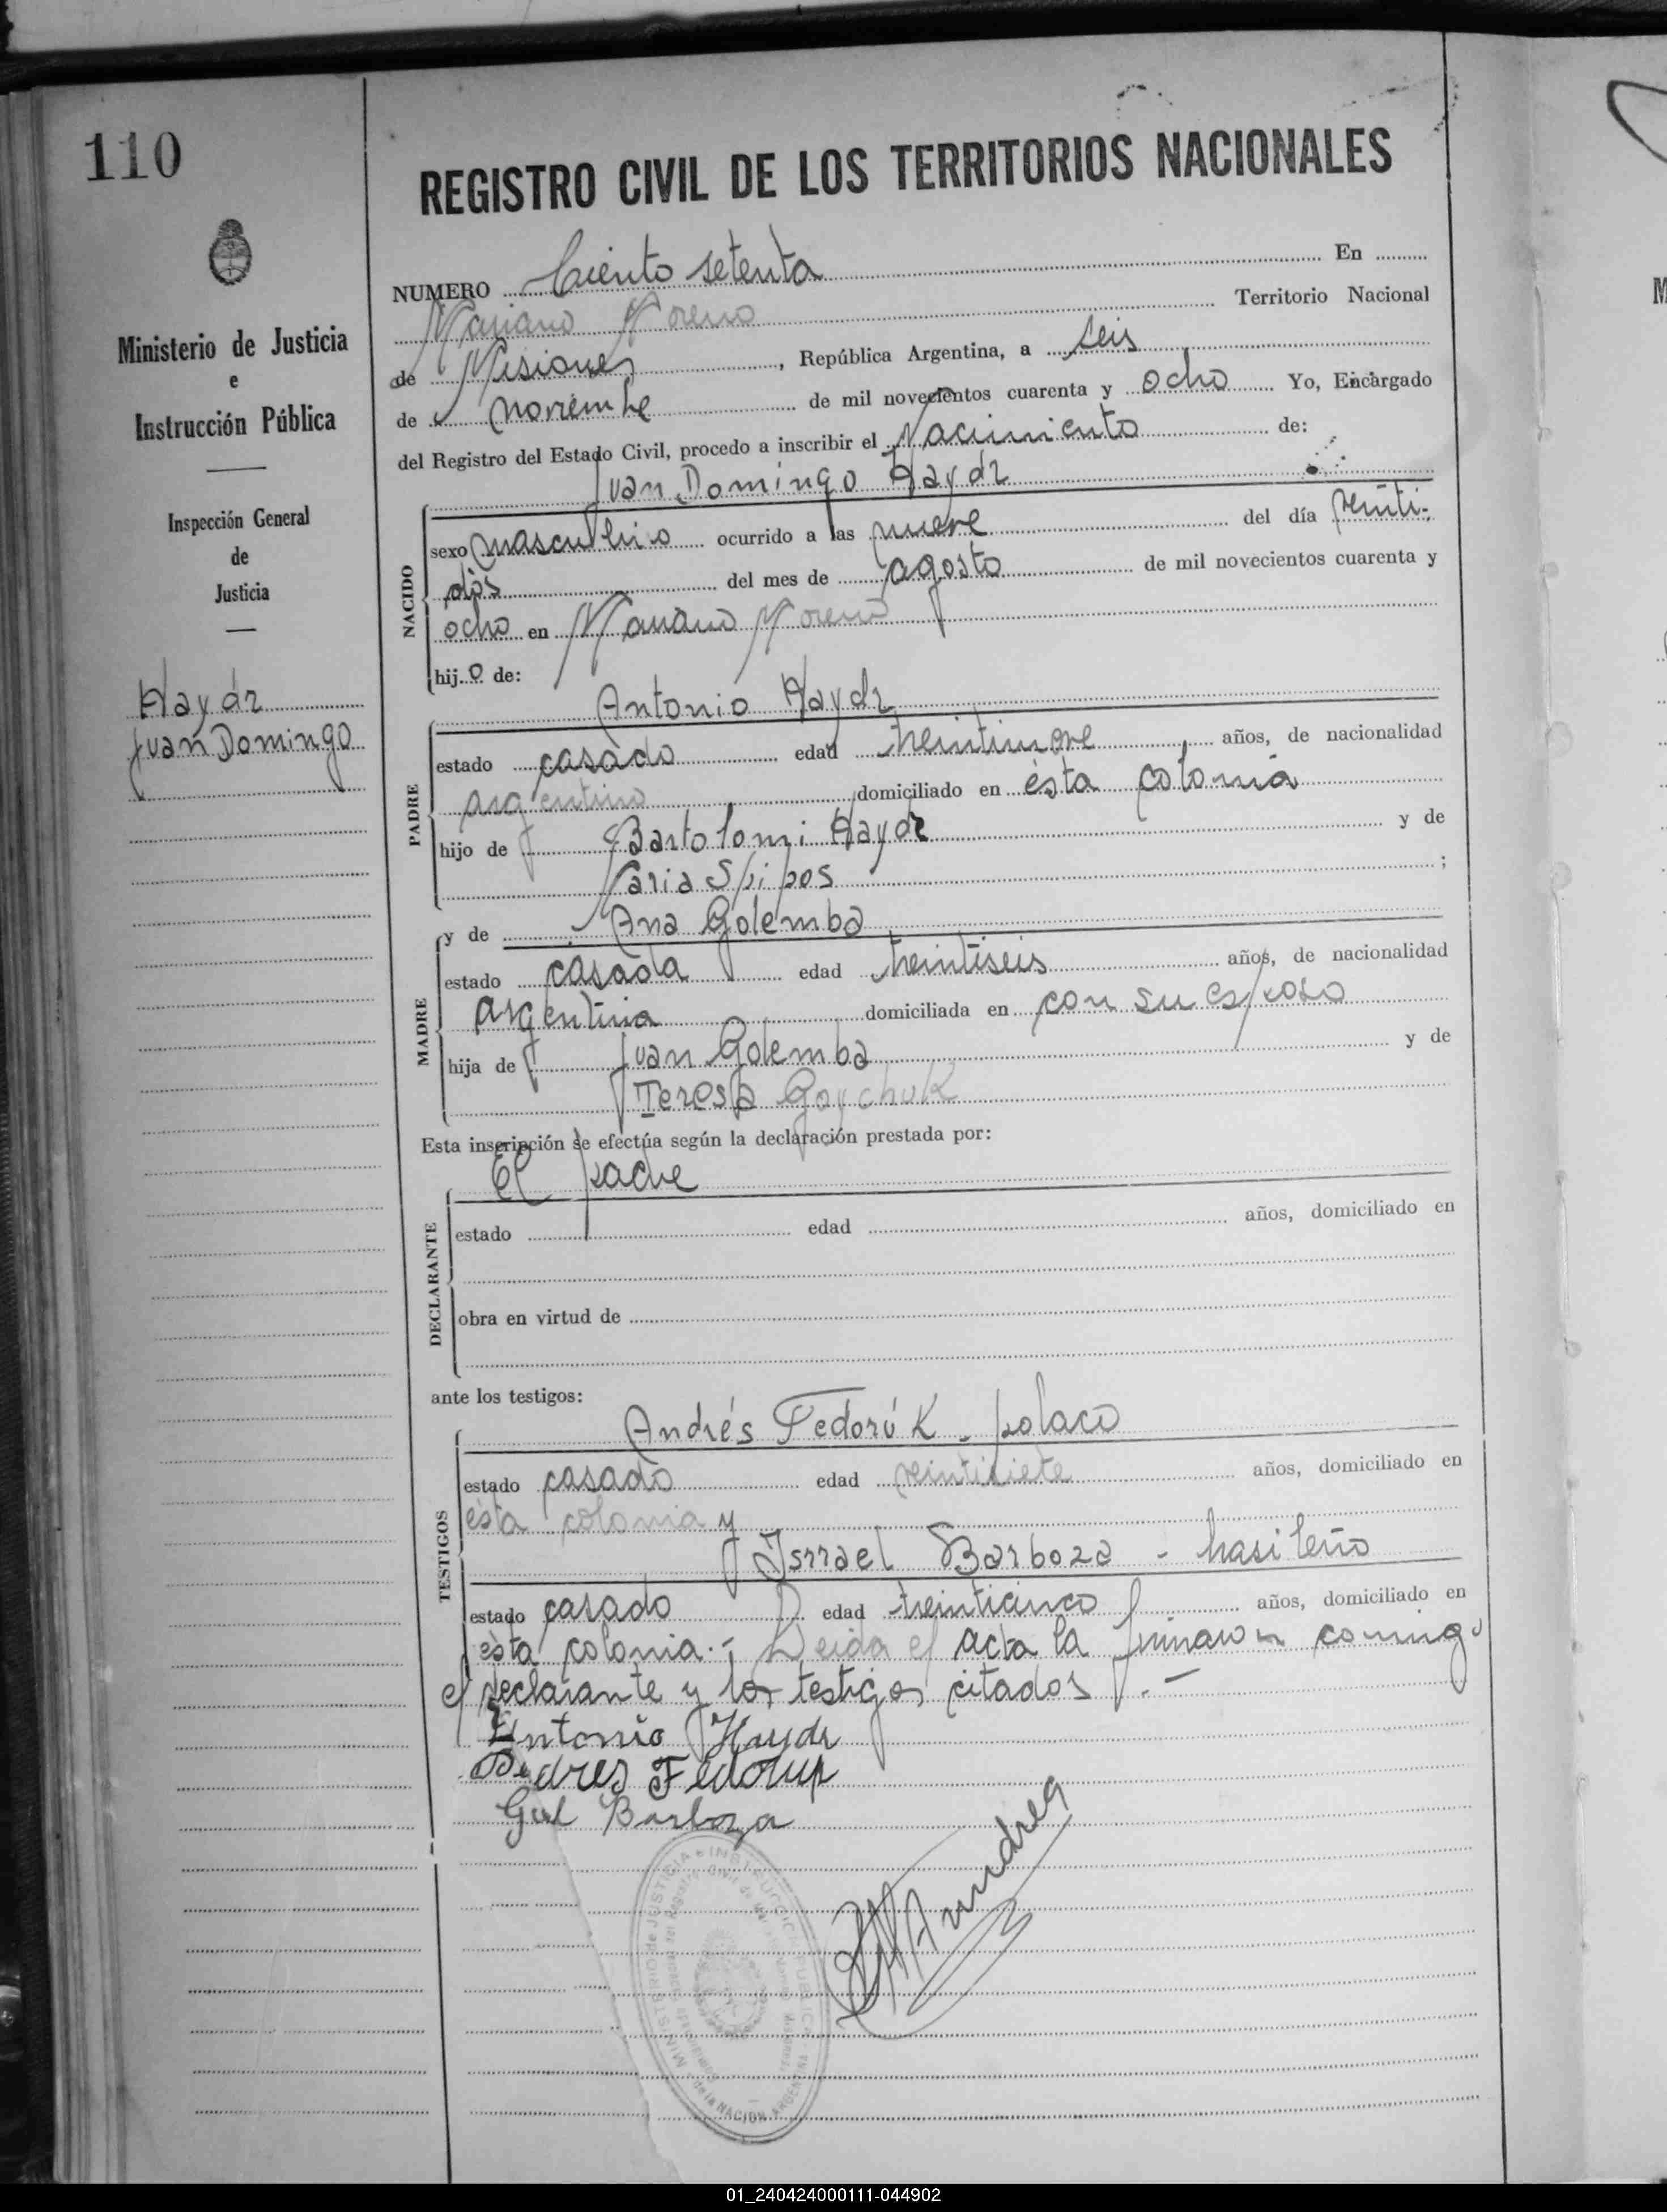 110
Ministerio de Justicia
e
Instrucción Pública
Inspección General
de
Justicia
Haydr
Juan Domingo
REGISTRO CIVIL DE LOS TERRITORIOS NACIONALES
NUMERO Ciento setenta En
Mariano Moreno Territorio Nacional
de Misiones, República Argentina, a seis
de noviembre de mil novecientos cuarenta y ocho Yo, Encargado
del Registro del Estado Civil, procedo a inscribir el Nacimiento de:
Juan Domingo Haydr
NACIDO
sexo masculino ocurrido a las nueve del día veinti-
dós del mes de agosto de mil novecientos cuarenta y
ocho en Mariano Moreno
hijo de:
Antonio Haydr
PADRE
estado casado edad treintinueve años, de nacionalidad
argentino domiciliado en ésta colonia
hijo de Bartolomi Haydr y de
Maria Spipos ;
y de Ana Golemba
MADRE
estado casada edad treintiseis años, de nacionalidad
argentina domiciliada en con su esposo
hija de Juan Golemba y de
Teresa Goychuk
Esta inscripción se efectúa según la declaración prestada por:
El padre
DECLARANTE
estado edad años, domiciliado en
obra en virtud de
ante los testigos:
Andrés Fedorúk - polaco
TESTIGOS
estado casado edad veintisiete años, domiciliado en
ésta colonia y
Isrrael Barboza - brasileño
estado casado edad treinticinco años, domiciliado en
ésta colonia.- Leida el acta la firmaron conmigo
el declarante y los testigos citados.-
Antonio Haydr
Fedoruk
Barboza
MINISTERIO de JUSTICIA e INSTRUCCION PUBLICA
de la NACION ARGENTINA
01_240424000111-044902